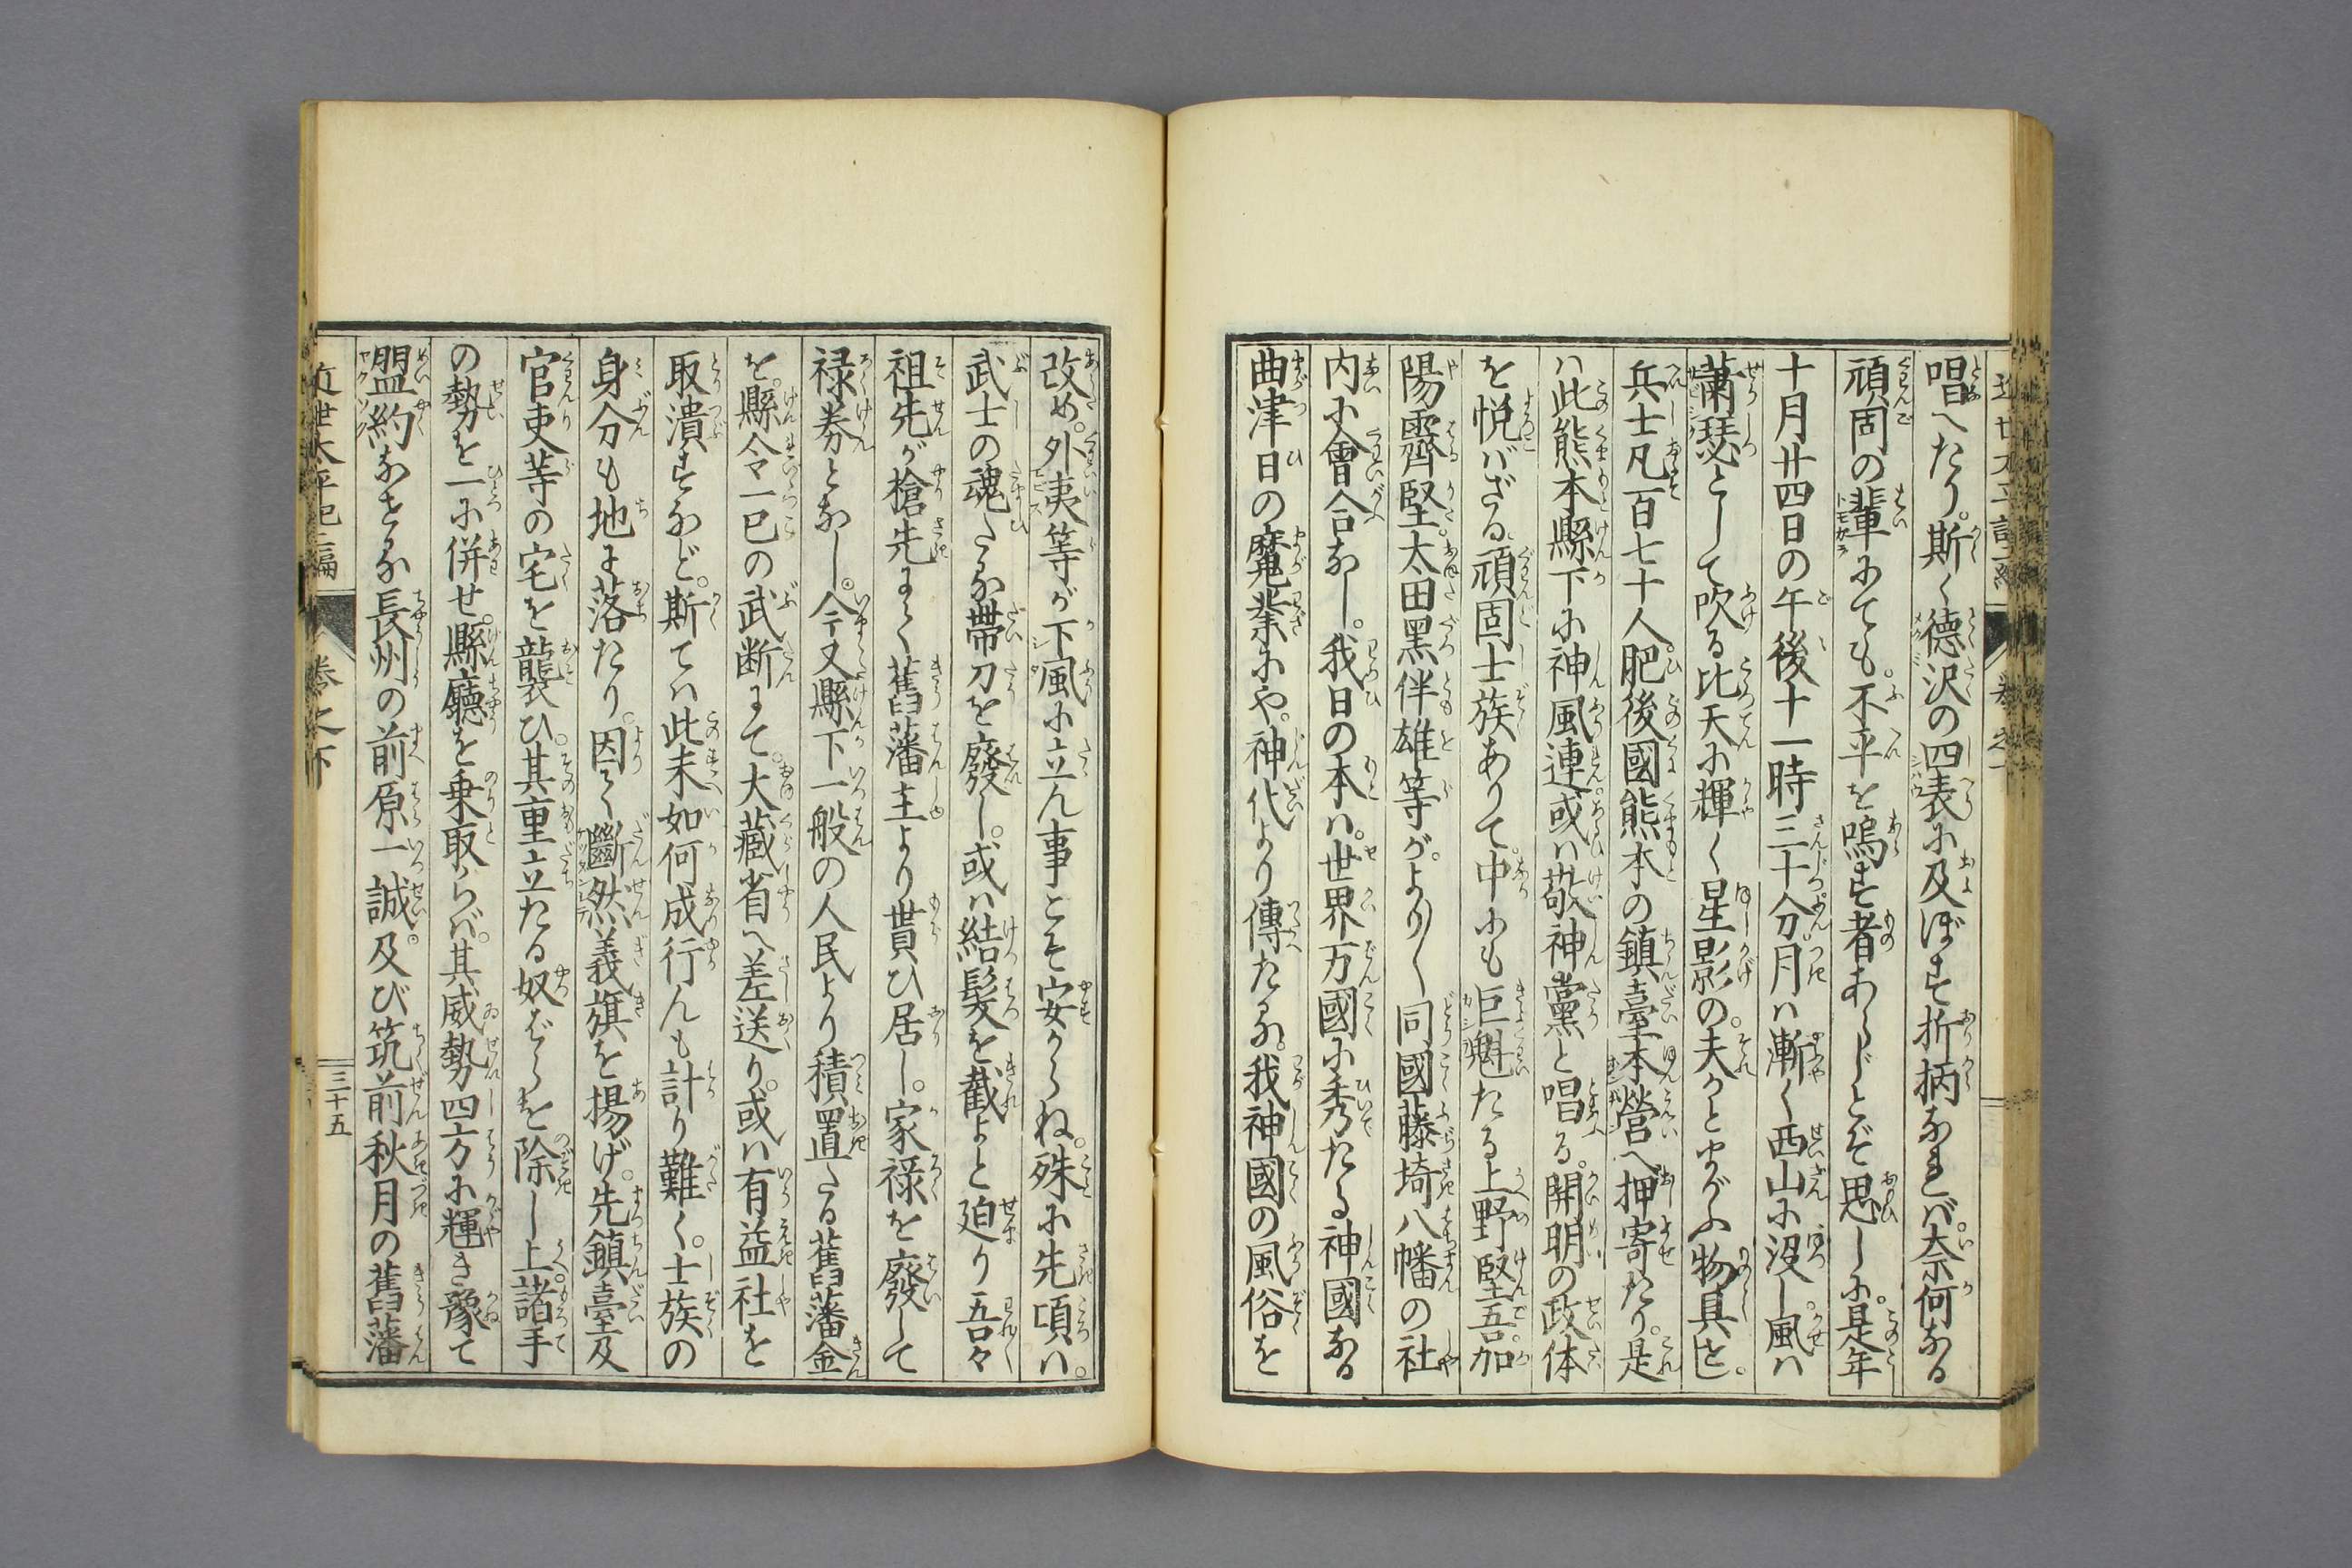 唱へたり。斯く德沢の四表に及ぼす折柄なれバ。奈何なる
頑固の輩にても。不平を鳴す者あらじとぞ思しに。是年
十月廿四日の午後十一時三十分月ハ漸く西山に沒し。風ハ
蕭瑟として吹る比天に輝く星影の。夫かとまがふ物具を。
兵士凡百七十人。肥後國熊本の鎮臺本營へ押寄たり。是
ハ此熊本縣下に神風連。或ハ敬神黨と唱る。開明の政体
を悦バざる。頑固士族ありて。中にも巨魁たる上野堅吾。加
陽霽堅。太田黒伴雄等が。より〳〵同國藤埼八幡の社
内に會合なし。我日の本ハ。世界万國に秀たる神國なる
曲津日の魔業にや。神代より傳たる。我神國の風俗を
改め。外夷等が下風に立ん事こそ安からね。殊に先頃ハ。
武士の魂たる帶刀を廢し。或ハ結髮を截よと廹り吾々
祖先が槍先にて舊藩主より貰ひ居し。家禄を廢して
禄券となし。今又縣下一般の人民より積置たる舊藩金
を。縣令一已の武断にて。大藏省へ差送り。或ハ有益社を
取潰すなど。斯てハ此末如何成行んも計り難く。士族の
身分も地に落たり。因て斷然義旗を揚げ。先鎮臺及
官吏等の宅を襲ひ。其重立たる奴ばらを除し上。諸手
の勢を一に併せ。縣廳を乗取らバ。其威勢四方に輝き豫て
盟約なせる長州の前原一誠。及び筑前秋月の舊藩
近世太平記二編 卷之下 三十五